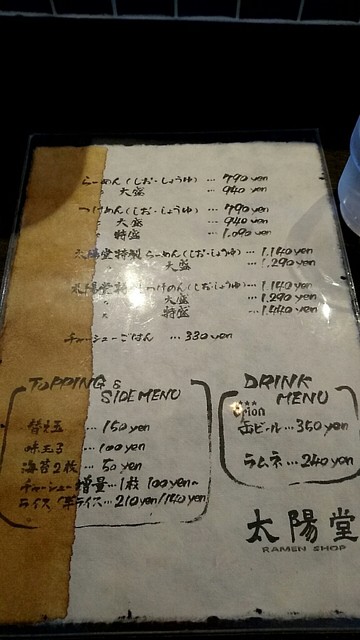 らーめん(しお・しょうゆ) … 790 yen
〃 大盛 … 940 yen
つけめん(しお・しょうゆ) … 790 yen
〃 大盛 … 940 yen
〃 特盛 … 1.090 yen
太陽堂特製らーめん(しお・しょうゆ) … 1.140 yen
〃 大盛 … 1.290 yen
太陽堂特製つけめん(しお・しょうゆ) … 1.140 yen
〃 大盛 … 1.290 yen
〃 特盛 … 1.440 yen
チャーシューごはん … 330 yen
TOPPING &
SIDEMENU
替え玉 … 150 yen
味玉子 … 100 yen
海苔2枚 … 50 yen
チャーシュー増量…1枚 100 yen~
ライス/半ライス…210 yen/140 yen
DRINK
MENU
★★★
Orion
缶ビール…350 yen
ラムネ…240 yen
太陽堂
RAMEN SHOP